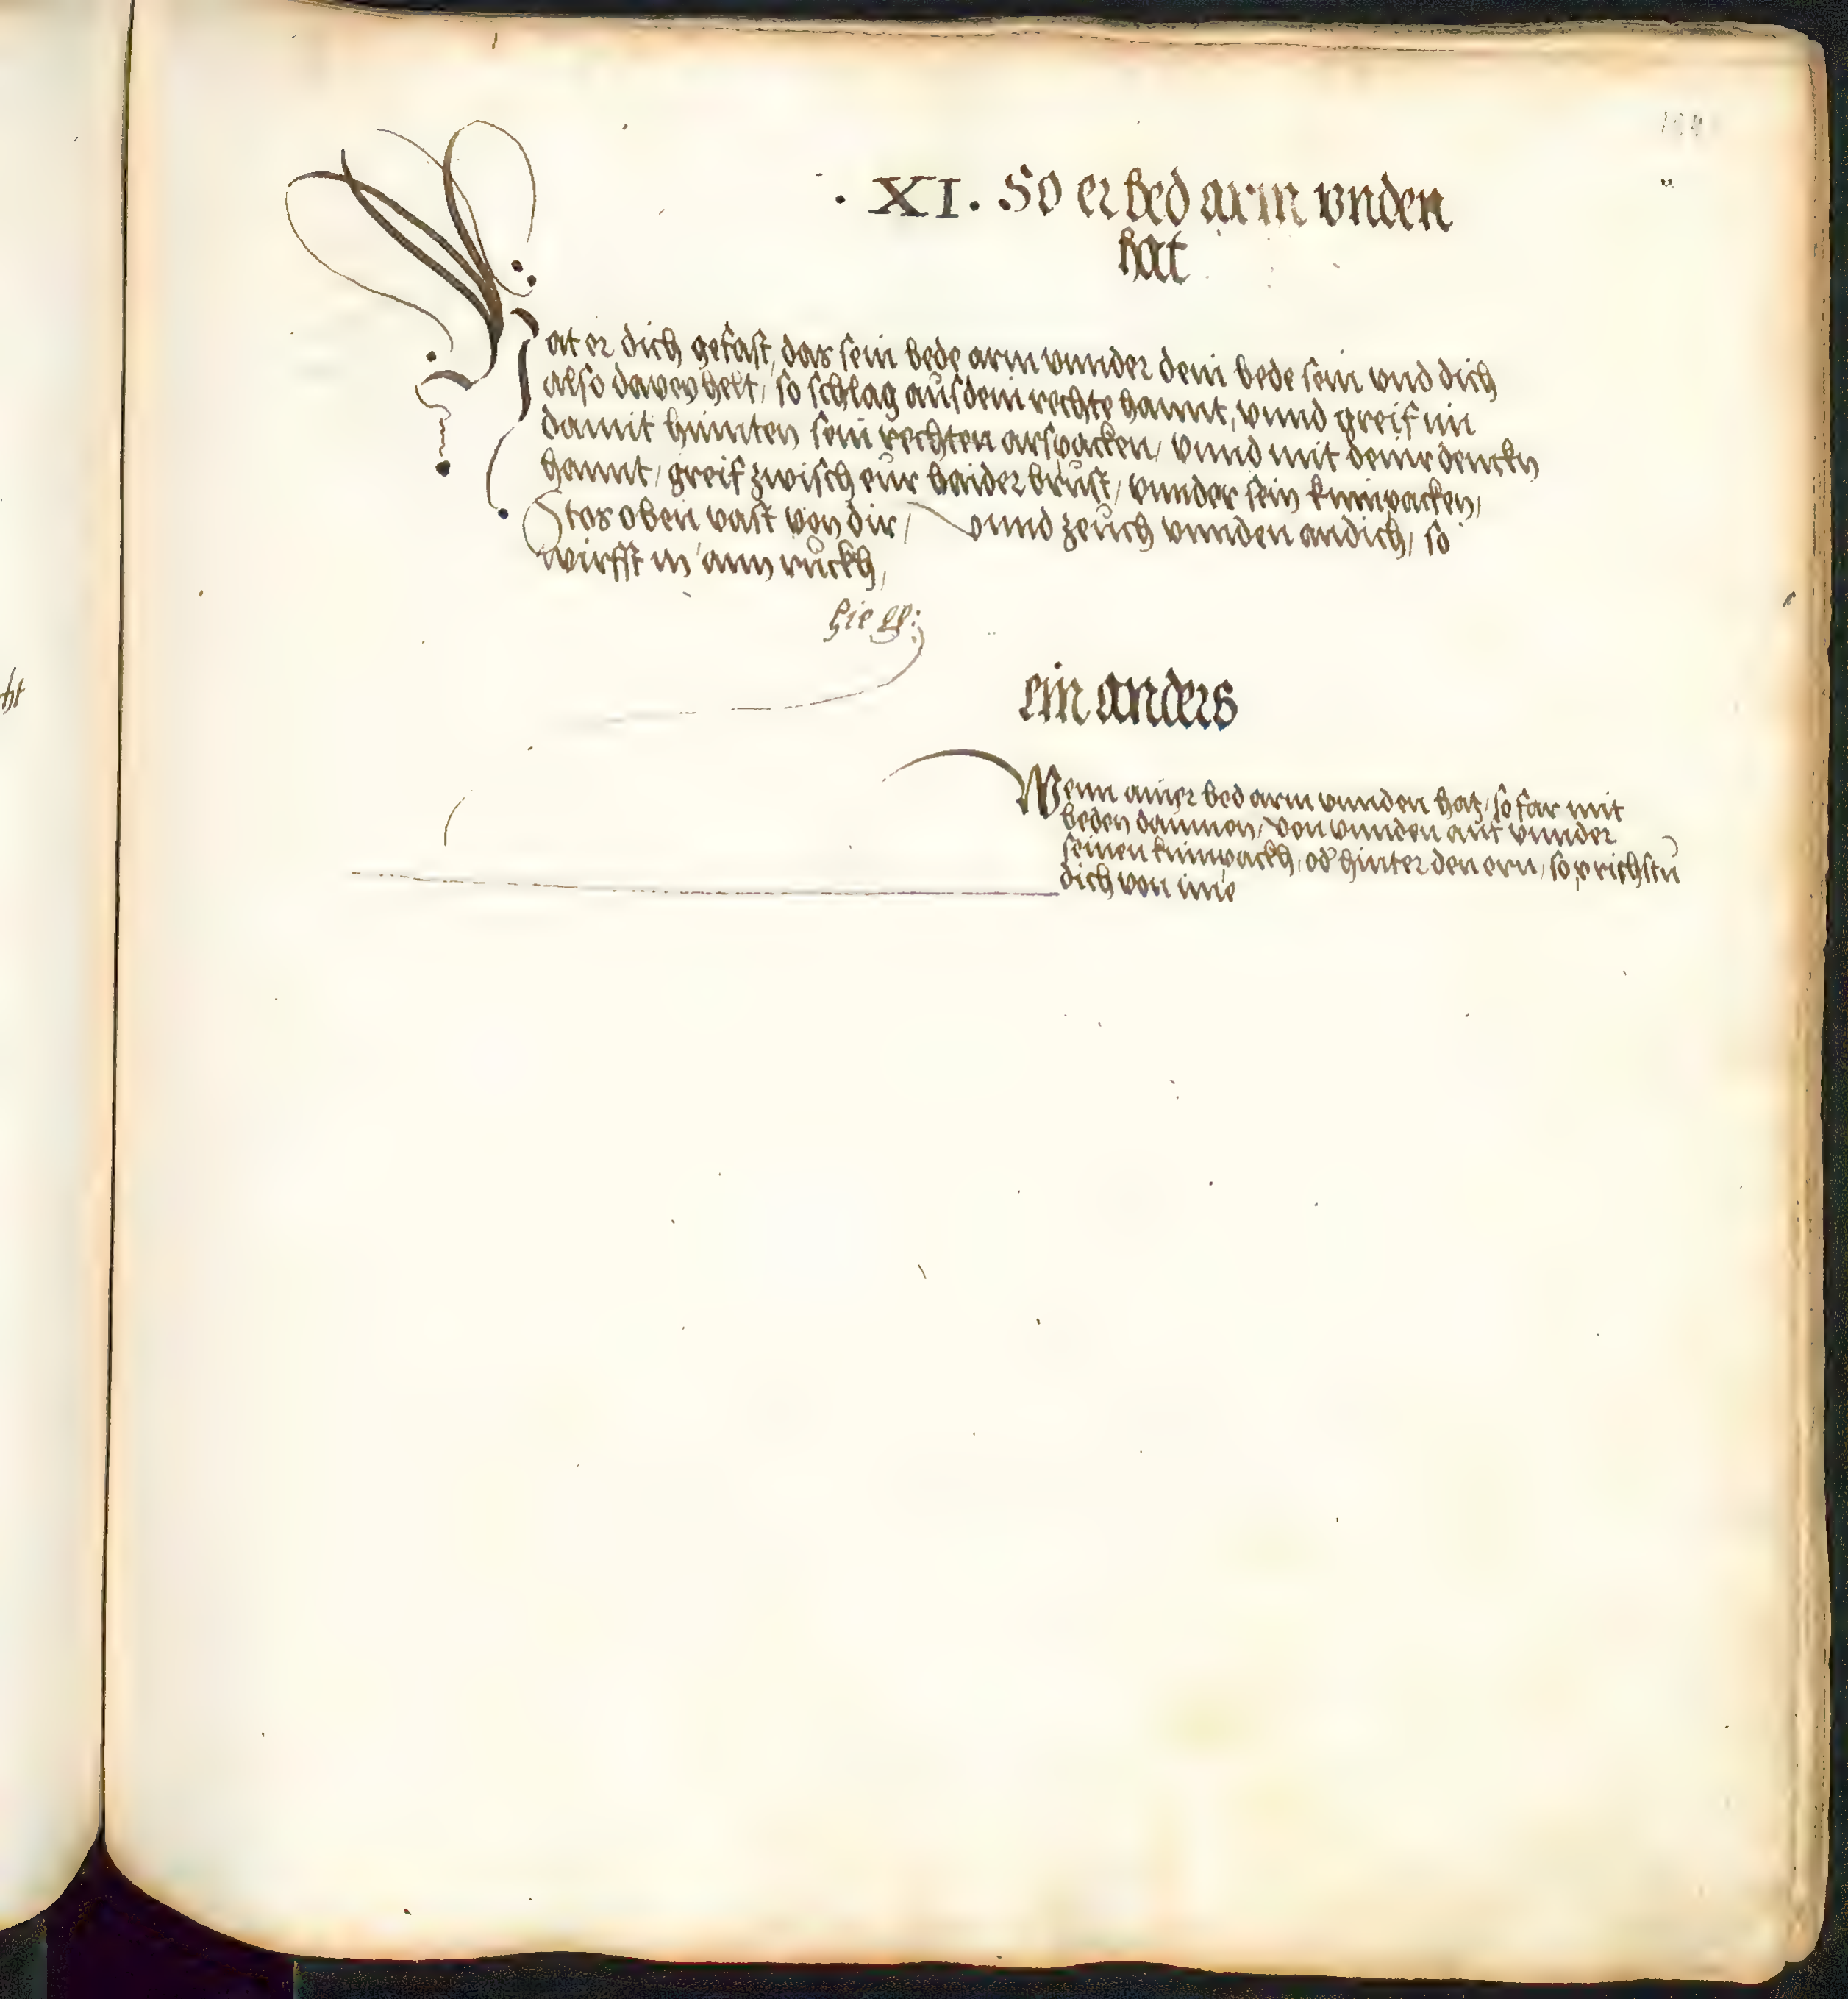 · XI · So er bed arm vnden
hat
Hat er dich gefast, das sein bede arm vnnder dein bede sein vnd dich
also davey helt, so schlag aus dein rechte hannt, vnnd greif im
damit hinnten sein rechten arspacken, vnnd mit deinr denckn
hannt, greif zwisch eur baider brust, vnnder sein kinnpacken,
Stos oben vast von dir, vnnd zeuch vnnden an dich, so
wirfft in ann ruckh,
ein anders
Wenn ainer bed arm vnnden hat, so far mit
beden daumen, von vnnden auf vnnder
seinen kinnpackh, od hinter den orn, so prichstu
dich von ime